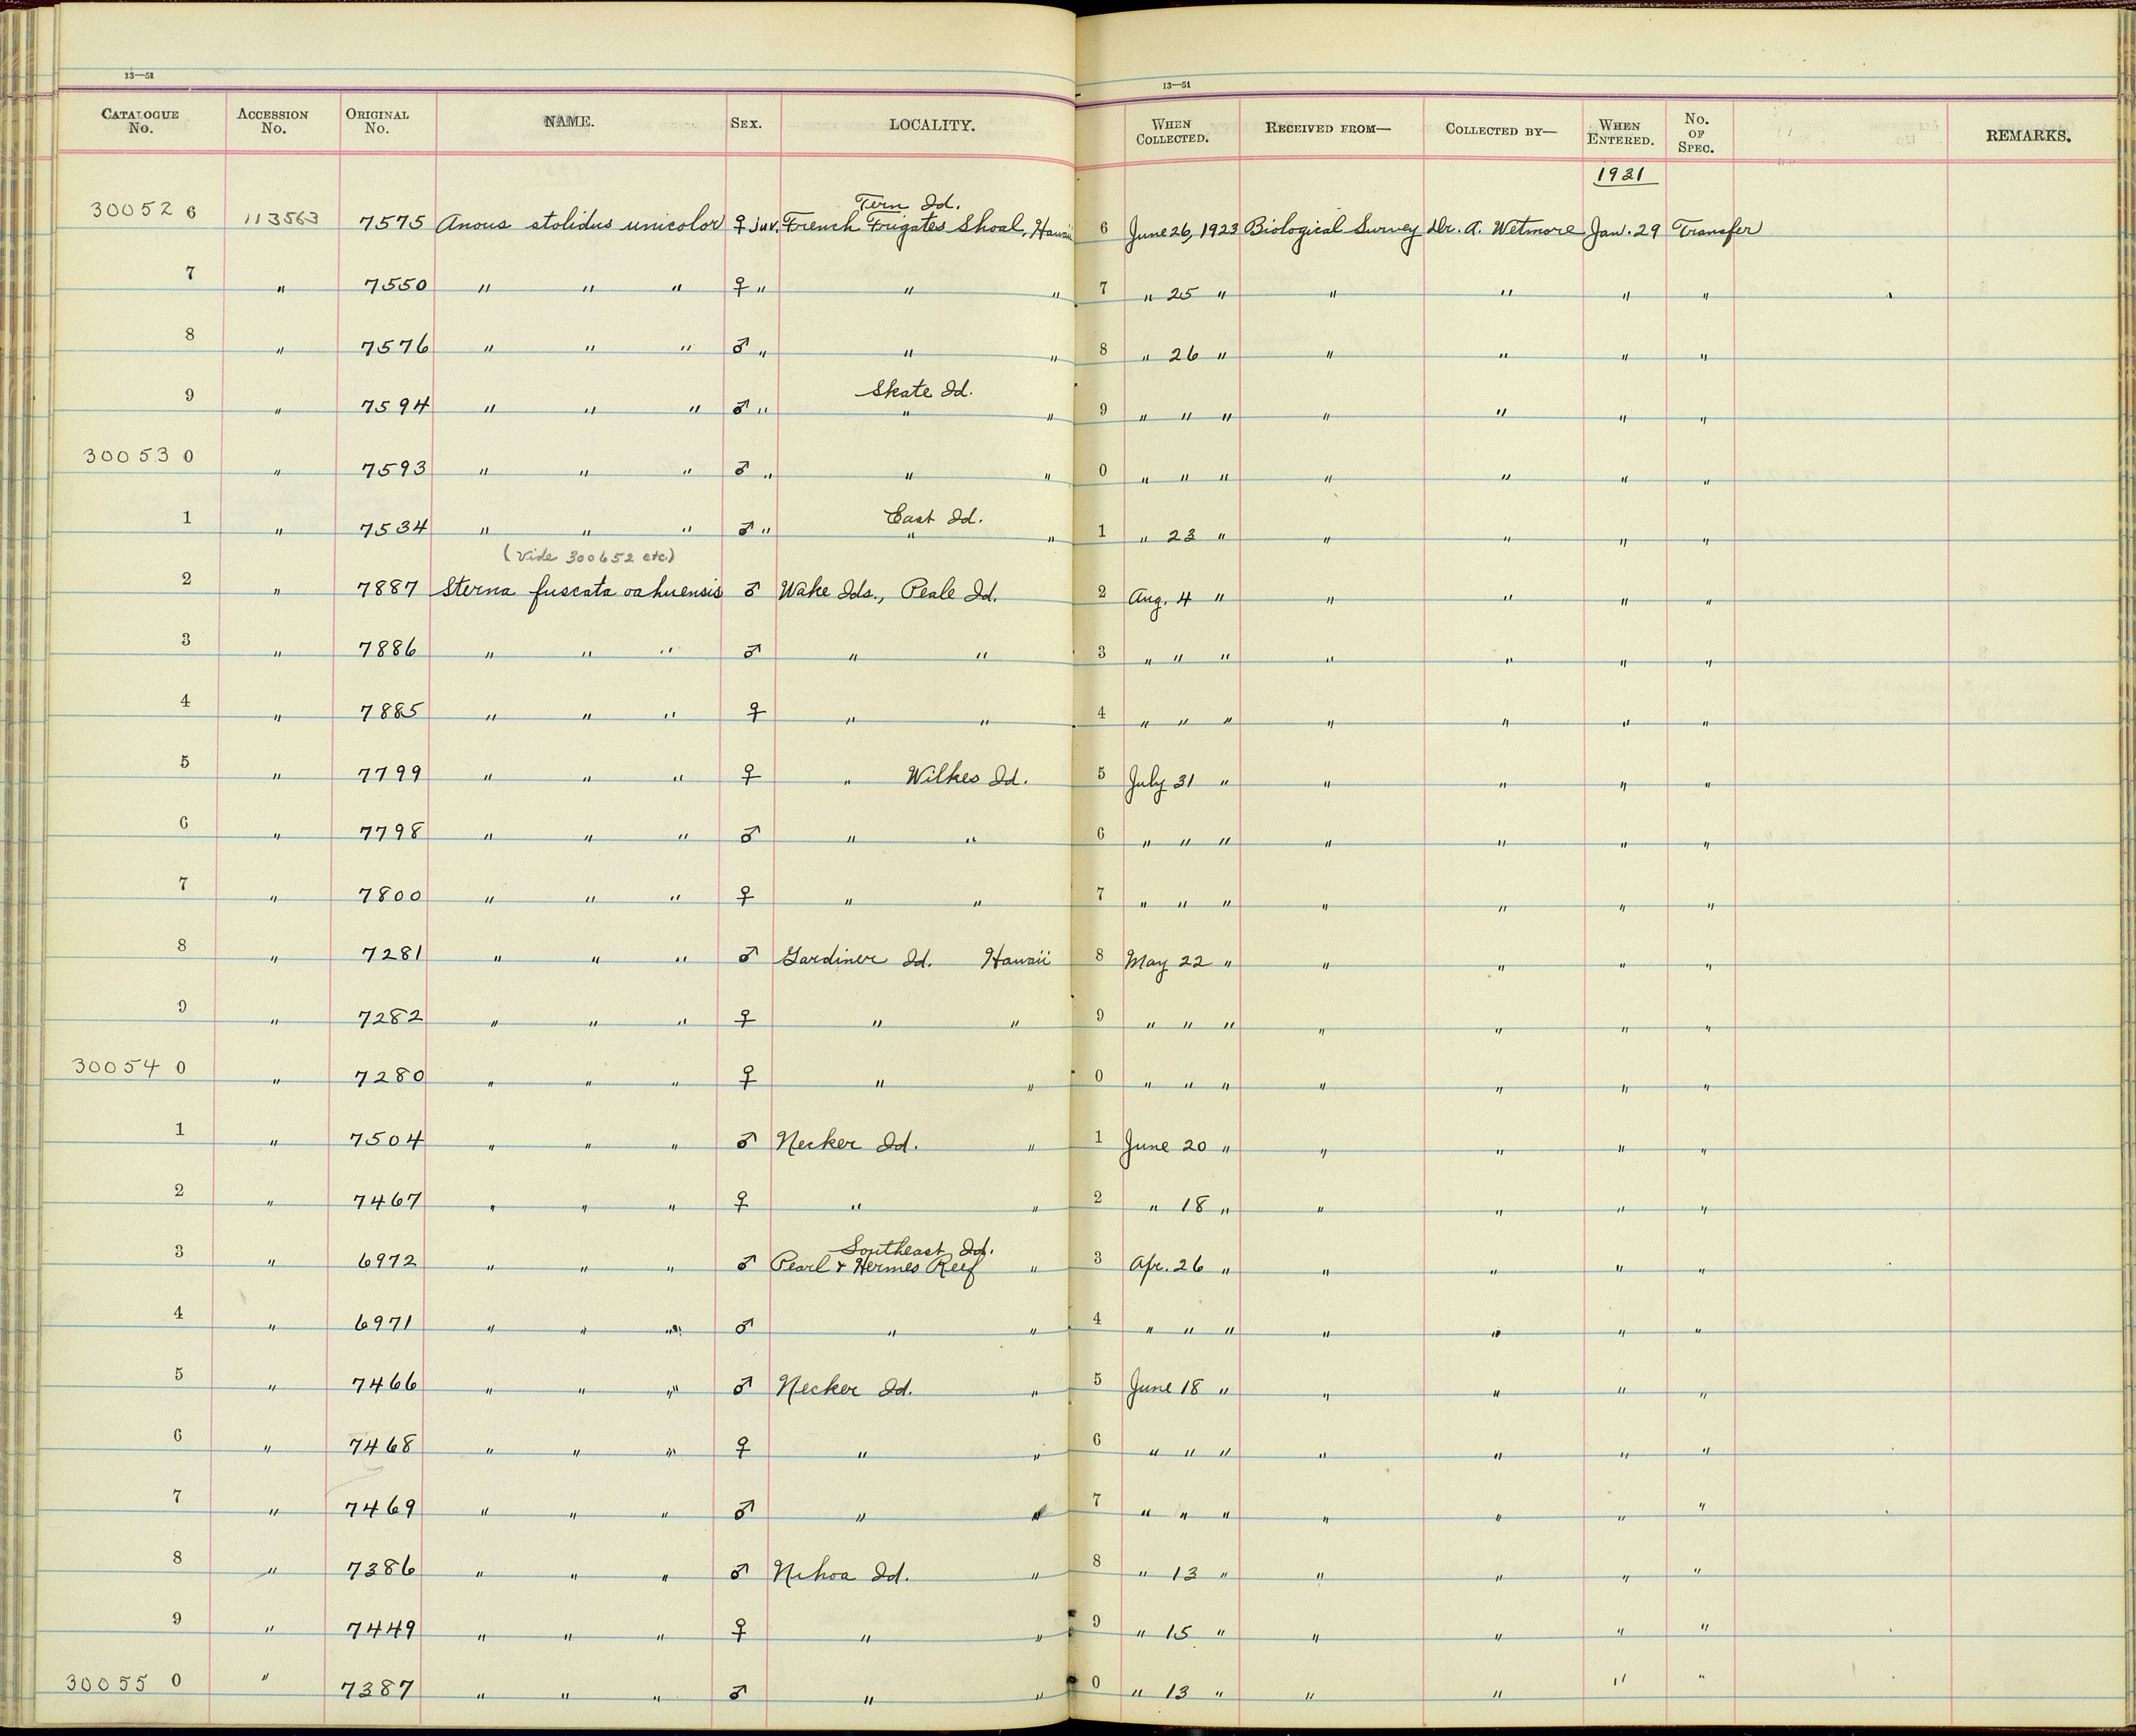 13—51
CATALOGUE No. ACCESSION No. ORIGINAL No. NAME. SEX. LOCALITY.
13—51
WHEN COLLECTED. RECEIVED FROM— COLLECTED BY— WHEN ENTERED. No. OF SPEC. REMARKS.
1931
Tern Id.
30052 6 113563 7575 Anous stolidus unicolor ♀ juv. French Frigates Shoal, Hawaii 6 June 26, 1923 Biological Survey Dr. A. Wetmore Jan. 29 Transfer
7 " 7550 " " " ♀ " " " 7 " 25 " " " " "
8 " 7576 " " " ♂ " " " 8 " 26 " " " " "
Skate Id.
9 " 7594 " " " ♂ " " " 9 " " " " " " "
30053 0 " 7593 " " " ♂ " " " 0 " " " " " " "
East Id.
1 " 7534 " " " ♂ " " " 1 " 23 " " " " "
(Vide 300652 etc.)
2 " 7887 Sterna fuscata oahuensis ♂ Wake Ids., Peale Id. 2 Aug. 4 " " " " "
3 " 7886 " " " ♂ " " 3 " " " " " " "
4 " 7885 " " " ♀ " " 4 " " " " " " "
5 " 7799 " " " ♀ " Wilkes Id. 5 July 31 " " " " "
6 " 7798 " " " ♂ " " 6 " " " " " " "
7 " 7800 " " " ♀ " " 7 " " " " " " "
8 " 7281 " " " ♂ Gardiner Id. Hawaii 8 May 22 " " " " "
9 " 7282 " " " ♀ " " 9 " " " " " " "
30054 0 " 7280 " " " ♀ " " 0 " " " " " " "
1 " 7504 " " " ♂ Necker Id. " 1 June 20 " " " " "
2 " 7467 " " " ♀ " " 2 " 18 " " " " "
Southeast Id.
3 " 6972 " " " ♂ Pearl & Hermes Reef " 3 Apr. 26 " " " " "
4 " 6971 " " " ♂ " " 4 " " " " " " "
5 " 7466 " " " ♂ Necker Id. " 5 June 18 " " " " "
6 " 7468 " " " ♀ " " 6 " " " " " " "
7 " 7469 " " " ♂ " " 7 " " " " " " "
8 " 7386 " " " ♂ Nihoa Id. " 8 " 13 " " " " "
9 " 7449 " " " ♀ " " 9 " 15 " " " " "
30055 0 " 7387 " " " ♂ " " 0 " 13 " " " " "